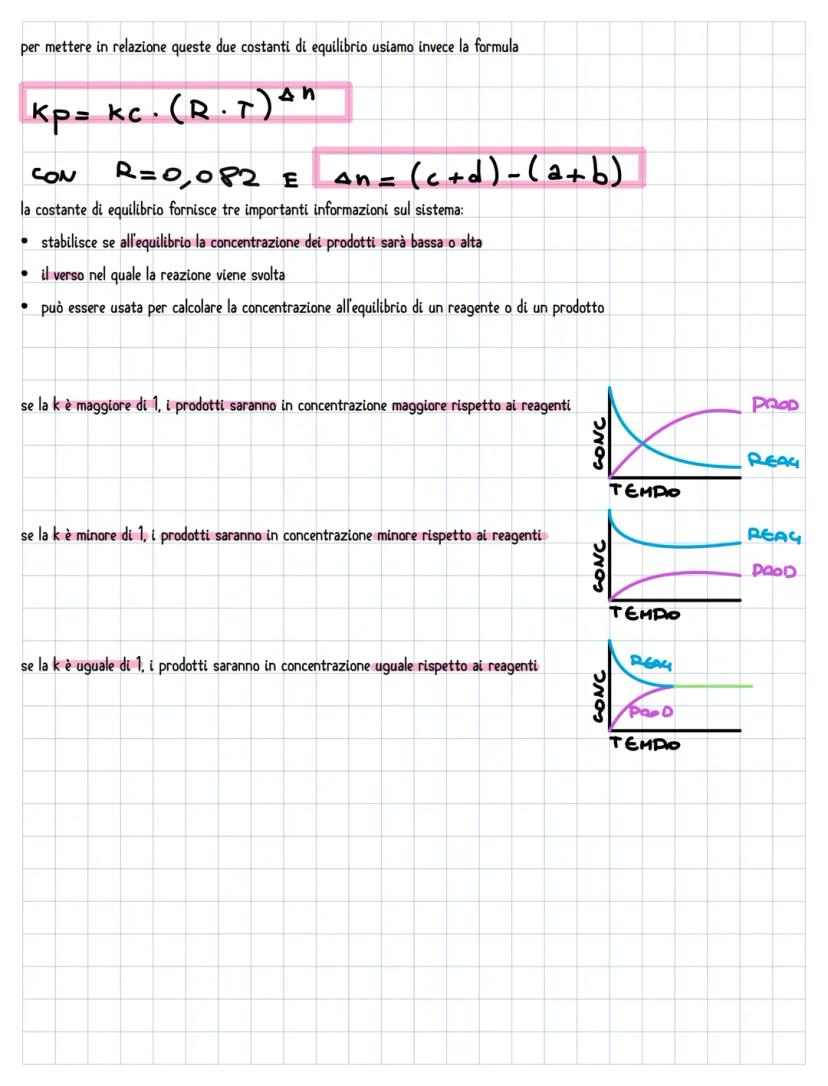 per mettere in relazione queste due costanti di equilibrio usiamo invece la formula
Kp= kc · (R · T)^Δn
CON R=0,082 E Δn= (c+d)-(a+b)
la costante di equilibrio fornisce tre importanti informazioni sul sistema:
• stabilisce se all'equilibrio la concentrazione dei prodotti sarà bassa o alta
• il verso nel quale la reazione viene svolta
• può essere usata per calcolare la concentrazione all'equilibrio di un reagente o di un prodotto
se la k è maggiore di 1, i prodotti saranno in concentrazione maggiore rispetto ai reagenti
CONC
PROD
REAG
TEMPO
se la k è minore di 1, i prodotti saranno in concentrazione minore rispetto ai reagenti
CONC
REAG
PROD
TEMPO
se la k è uguale di 1, i prodotti saranno in concentrazione uguale rispetto ai reagenti
CONC
REAG
PROD
TEMPO